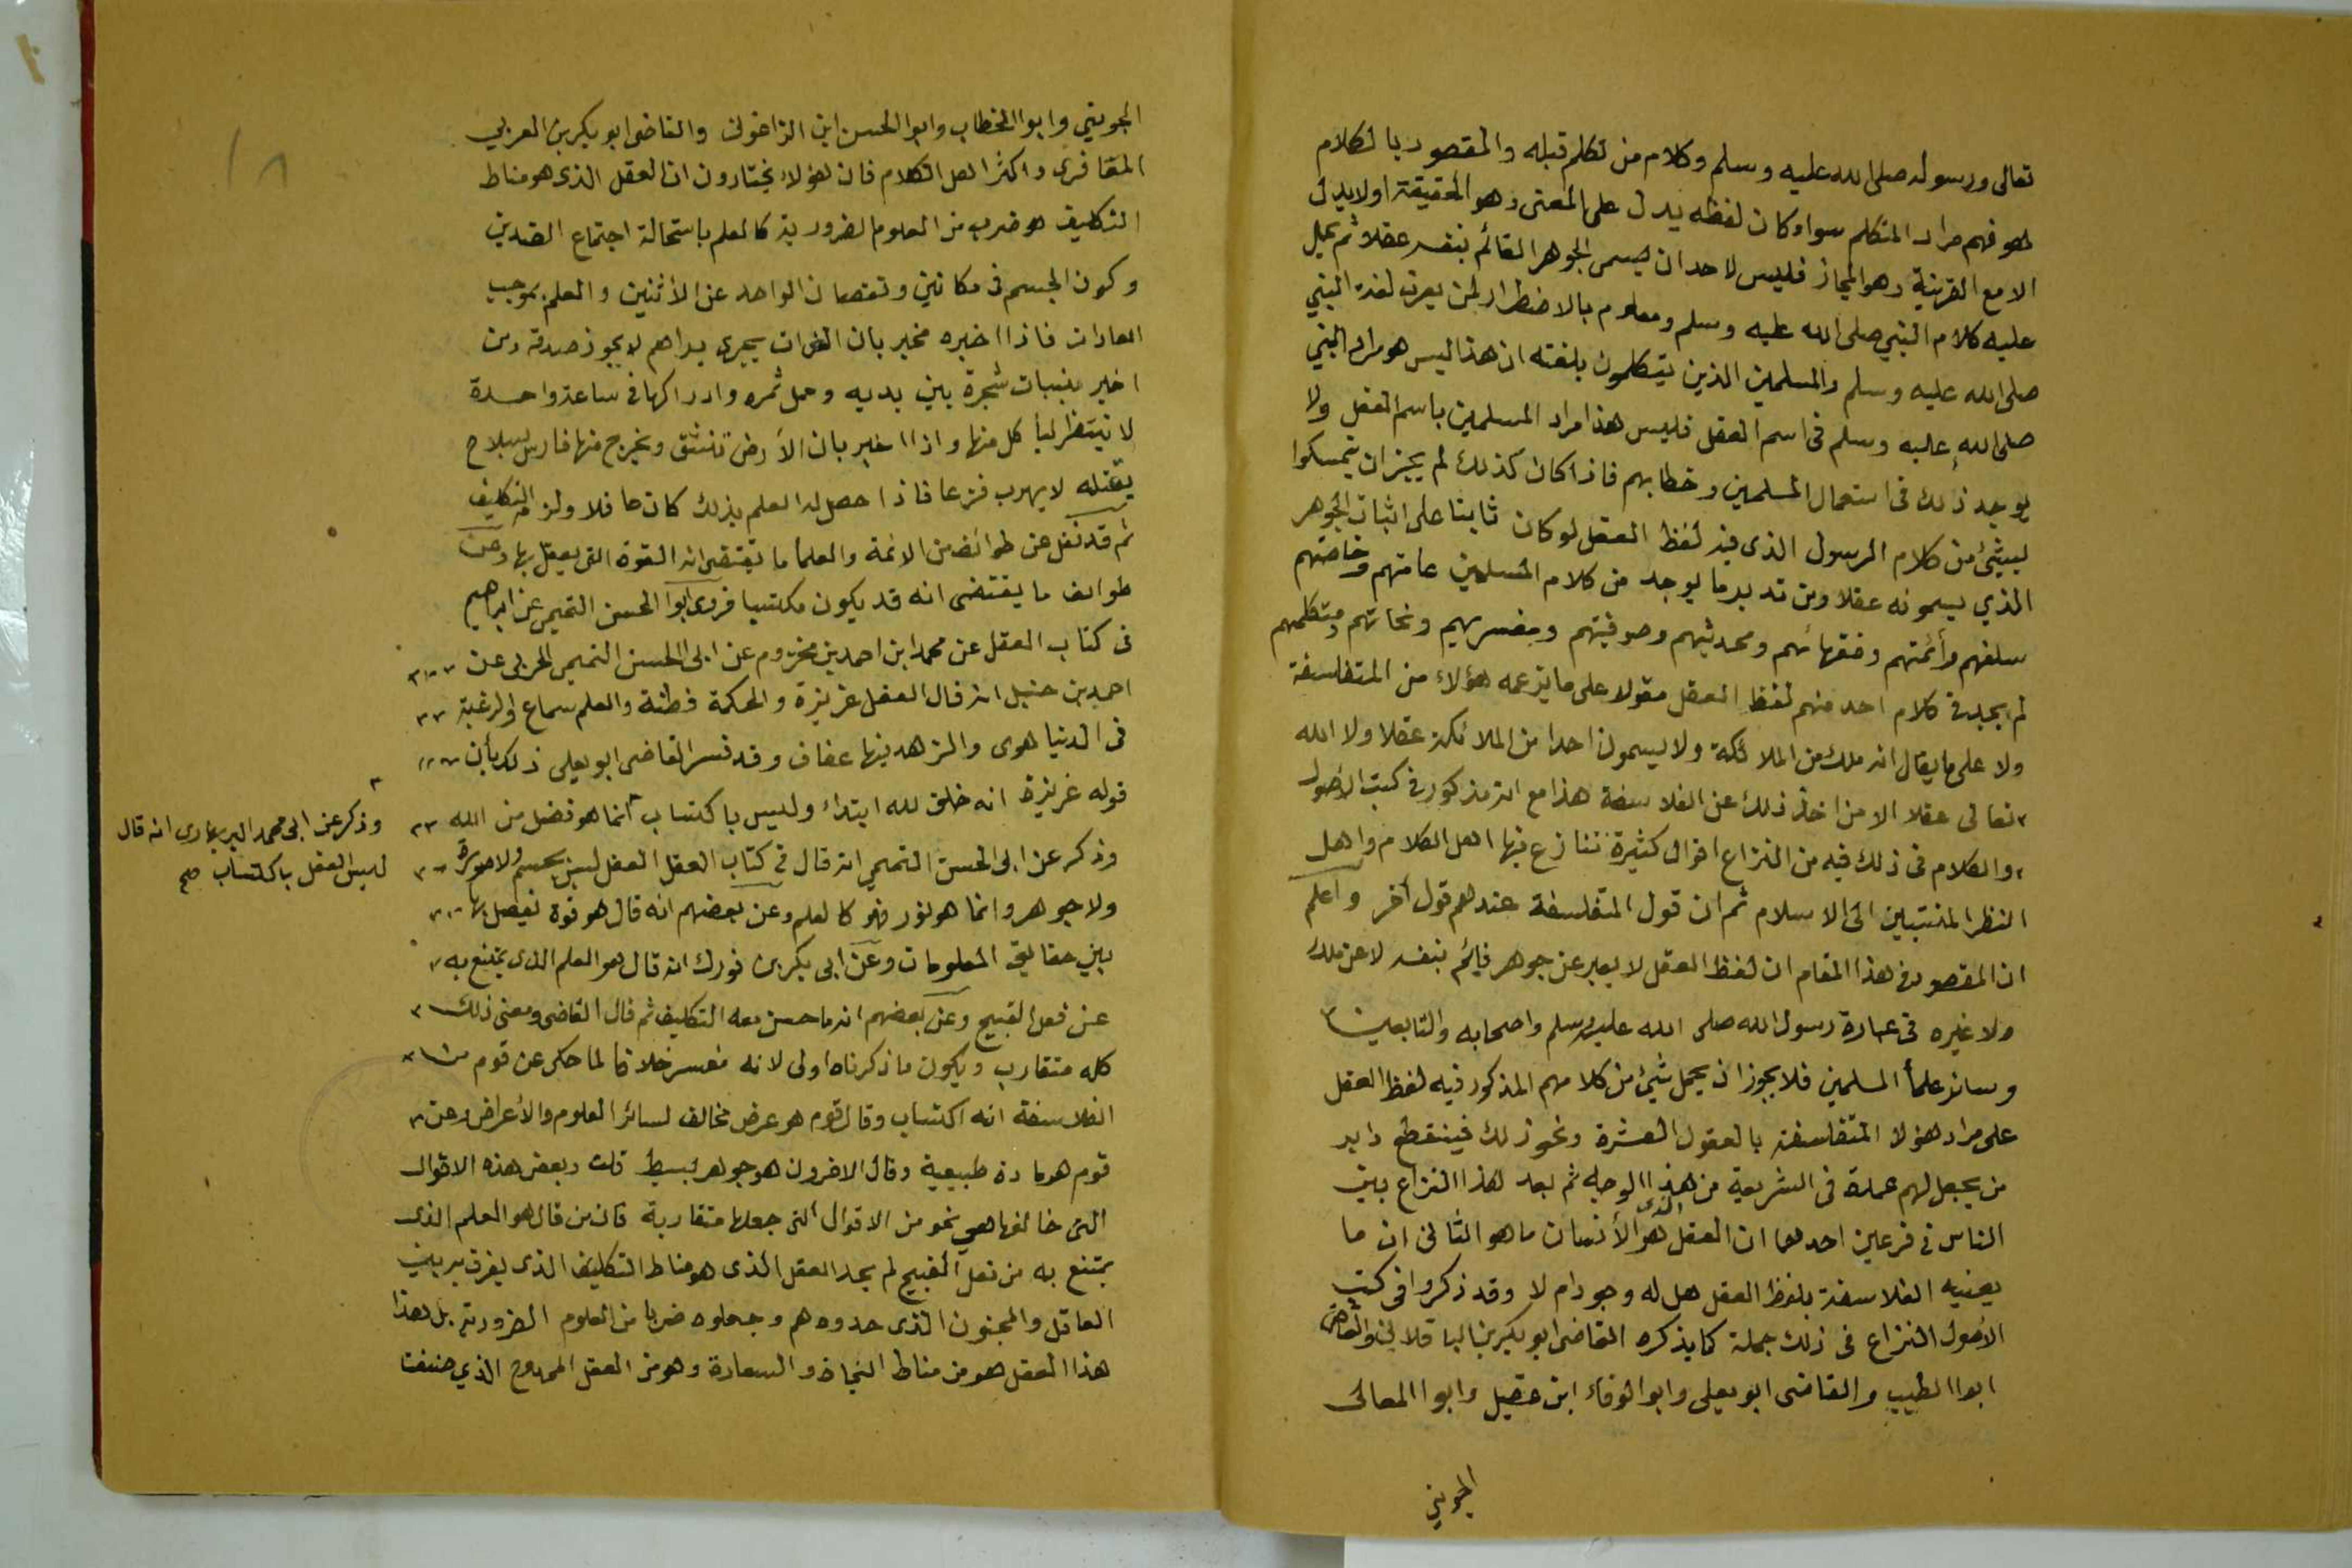 تعالى ورسوله صلى الله عليه وسلم وكلام من تكلم قبله والمقصود بالكلام
هو فهم مراد المتكلم سواء كان لفظه يدل على المعنى وهو الحقيقة اولا يدل
الا مع القرينة وهو المجاز فليس لاحد ان يسمى الجوهر القائم بنفسه عقلا ثم يحمل
عليه كلام النبي صلى الله عليه وسلم ومعلوم بالاضطرار لمن يعرف لغة النبي
صلى الله عليه وسلم والمسلمين الذين يتكلمون بلغته ان هذا ليس هو مراد النبي
صلى الله عليه وسلم فى اسم العقل فليس هذا مراد المسلمين باسم العقل ولا
يوجد ذلك فى استعمال المسلمين وخطابهم فاذا كان كذلك لم يجز ان يتمسكوا
لبشئ من كلام الرسول الذى فيه لفظ العقل لو كان ثابتا على اثبات الجوهر
الذي يسمونه عقلا ومن تدبر ما يوجد من كلام المسلمين عامتهم وخاصتهم
سلفهم وأئمتهم وفقهائهم ومحدثيهم وصوفيتهم ومفسريهم ونحاتهم ومتكلمهم
لم يجد فى كلام احد منهم لفظ العقل مقولا على ما يزعمه هؤلاء من المتفلسفة
ولا على ما يقال انه ملك من الملائكة ولا يسمون احدا من الملائكة عقلا ولا الله
تعالى عقلا الا من اخذ ذلك عن الفلاسفة هذا مع انه مذكور فى كتب الأصول
والكلام فى ذلك فيه من النزاع اقوال كثيرة تنازع فيها اهل الكلام واهل
النظر المنتسبين الى الاسلام ثم ان قول المتفلسفة عندهم قول أخر واعلم
ان المقصود فى هذا المقام ان لفظ العقل لا يعبر عن جوهر قائم بنفسه لا عن ملك
ولا غيره فى عبارة رسول الله صلى الله عليه وسلم واصحابه والتابعين
وسائر علمأ المسلمين فلا يجوز ان يحمل شئ من كلامهم المذكور فيه لفظ العقل
على مراد هؤلا المتفلسفة بالعقول العشرة ونحو ذلك فينقطع دابر
من يجعل لهم عمدة فى الشريعة من هذا الوجه ثم بعد هذا النزاع بين
الناس فى فرعين احدهما ان العقل الذى هو الأنسان ما هو الثانى ان ما
يعنيه الفلاسفة بلفظ العقل هل له وجود ام لا وقد ذكروا فى كتب
الأصول النزاع فى ذلك جملة كما يذكره القاضى ابو بكر بن الباقلانى والقاضى
ابوا الطيب والقاضى ابو يعلى وابو الوفاء ابن عقيل وابوا المعالى
الجويني
الجويني وابوا الخطاب وابوا الحسن ابن الزاغونى والقاضى ابو بكر بن العربي
المعافرى واكثر اهل الكلام فان هؤلاء يختارون ان العقل الذى هو مناط
التكليف هو ضرب من العلوم الضرورية كالعلم باستحالة اجتماع الضدين
وكون الجسم فى مكانين ونقصان الواحد عن الأثنين والعلم بموجب
العادات فاذا اخبره مخبر بان الفرات يجرى دراهم لا يجوز صدقه ومن
اخبر بنبات شجرة بين يديه وحمل ثمره وادراكها فى ساعة واحدة
لا ينتظر ليأكل منها واذا اخبر بان الأرض تنشق ويخرج منها فارس بسلاح
يقتله لا يهرب فزعا فاذا حصل له العلم بذلك كان عاقلا ولزمه التكليف
ثم قد نقل عن طوائف من الائمة والعلمأ ما يقتضى انه القوة التى يعقل بها وعن
طوائف ما يقتضى انه قد يكون مكتسبا فروى ابوا الحسن التميمى عن ابراهيم
فى كتاب العقل عن محمد ابن احمد بن مخزوم عن ابى الحسن التميمى الحربى عن
احمد بن حنبل انه قال العقل غريزة والحكمة فطنة والعلم سماع والرغبة
فى الدنيا هوى والزهد فيها عفاف وقد فسر القاضى ابو يعلى ذلك بأن
قوله غريزة انه خلق لله ابتداء وليس باكتساب انما هو فضل من الله
وذكر عن ابى محمد البربهارى انه قال
ليس العقل باكتساب صح
وذكر عن ابى الحسن التميمي انه قال فى كتاب العقل العقل ليس بجسم ولا صورة
ولا جوهر وانما هو نور فهو كالعلم وعن بعضهم انه قال هو قوة يفصل بها
بين حقايق المعلومات وعن ابى بكر بن فورك انه قال هو العلم الذى يمتنع به
عن فعل القبيح وعن بعضهم انه ما حسن معه التكليف ثم قال القاضى ومعنى ذلك
كله متقارب ويكون ما ذكرناه اولى لانه مفسر خلافا لما حكى عن قوم من
الفلاسفة انه اكتساب وقال قوم هو عرض مخالف لسائر العلوم والأعراض وعن
قوم هو مادة طبيعية وقال الاخرون هو جوهر بسيط قلت وبعض هذه الاقوال
التى خالفها هى نحو من الاقوال التى جعلها متقاربة فان من قال هو العلم الذى
يمتنع به من فعل القبيح لم يحد العقل الذى هو مناط التكليف الذى يفرق به بين
العاقل والمجنون الذى حدوه هم وجعلوه ضربا من العلوم الضرورية بل هذا
هذا العقل هو من مناط النجاة والسعادة وهو من العقل الممدوح الذي صنفت